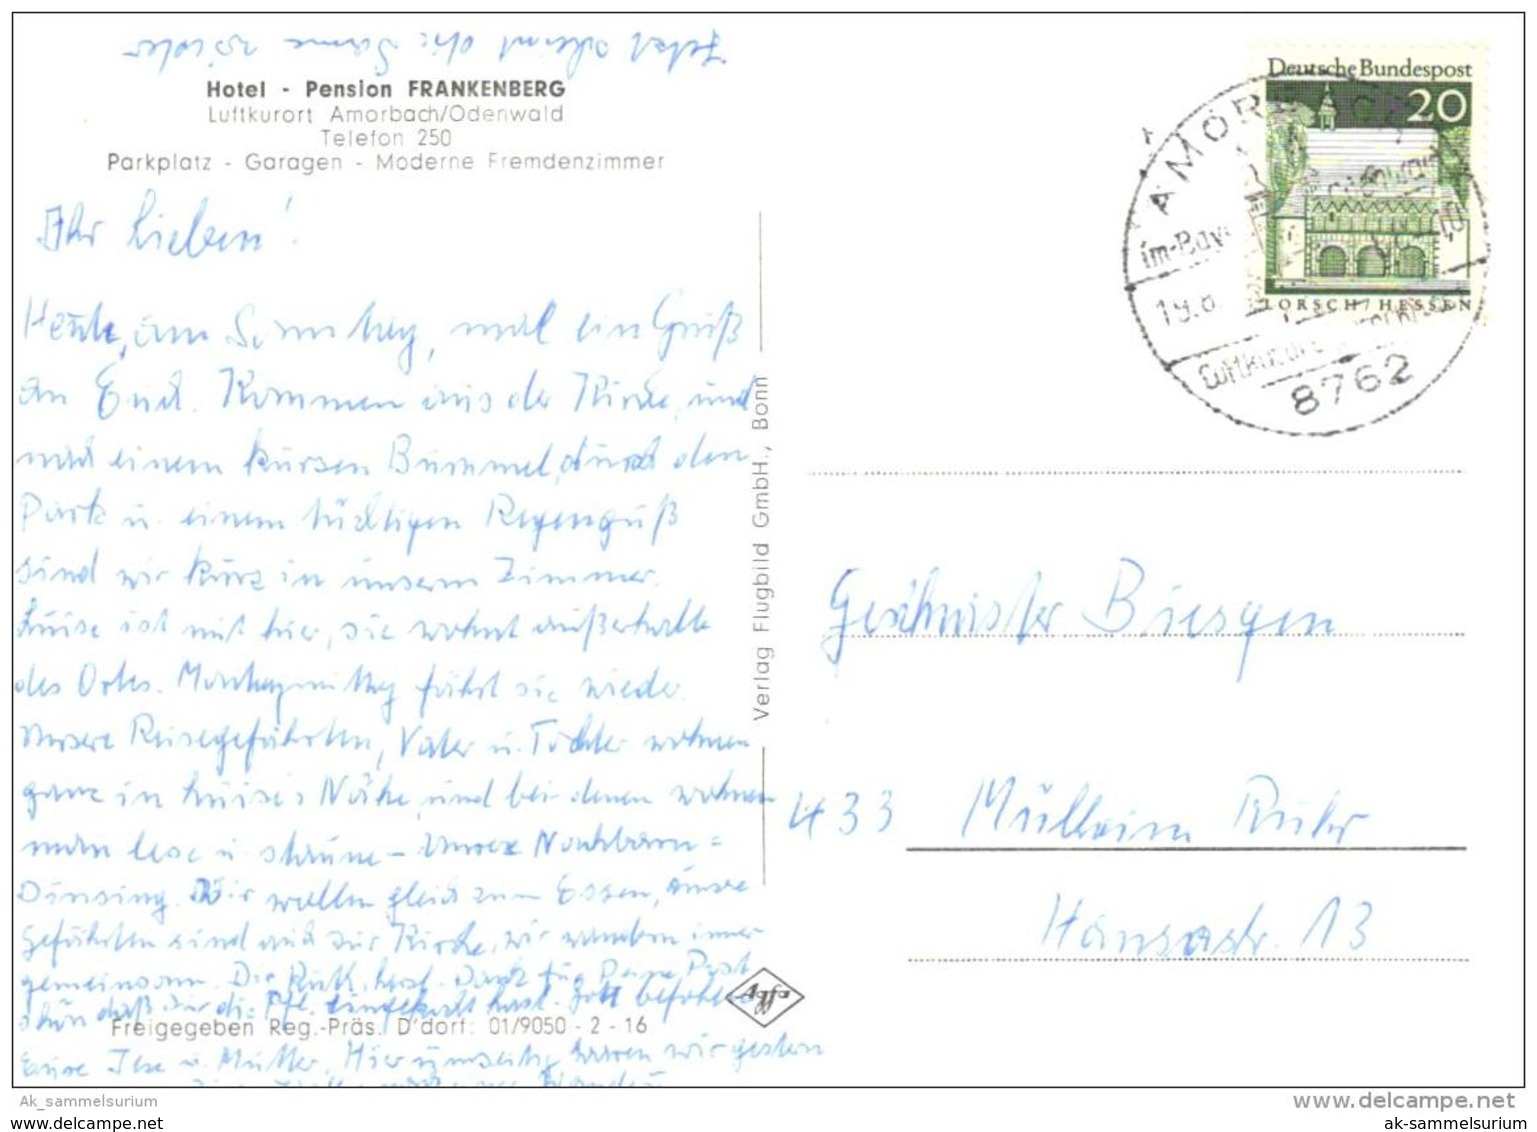 Jetzt scheint die Sonne wieder
Hotel - Pension FRANKENBERG
Luftkurort Amorbach/Odenwald
Telefon 250
Parkplatz - Garagen - Moderne Fremdenzimmer
Ihr Lieben!
Heute, am Sonntag, mal ein Gruß
an Euch. Kommen aus der Kirche, und
nach einem kurzen Bummel, durch den
Park u. einem tüchtigen Regenguß
sind wir kurz in unserm Zimmer.
Luise ist mit hier, sie wohnt außerhalb
des Ortes. Montagmittag fährt sie wieder.
Unsere Reisegefährten, Vater u. Tochter wohnen
ganz in Luises Nähe, und bei denen wohnen
man lese u. staune - Unsere Nachbarn =
Dinsing. Wir wollen gleich zum Essen, unsre
Gefährten sind auch zur Kirche, wir wandern immer
gemeinsam. Dir, Ruth, herzl. Dank für Deine Post
schön daß Du die Pfl. eingekocht hast. Gott befohlen
Eure Ilse u. Mutter. Hier umseitig waren wir gestern
Freigegeben Reg.-Präs. D'dorf: 01/9050 - 2 - 16
Verlag Flugbild GmbH., Bonn
Agfa
Deutsche Bundespost
20
LORSCH/HESSEN
AMORB
im Bay
19.
Luftkurort
8762
Geschwister Biesgen
433 Mülheim Ruhr
Hansastr. 13
Ak_sammelsurium
www.delcampe.net
www.ak-sammelsurium.de
ak-sammelsurium